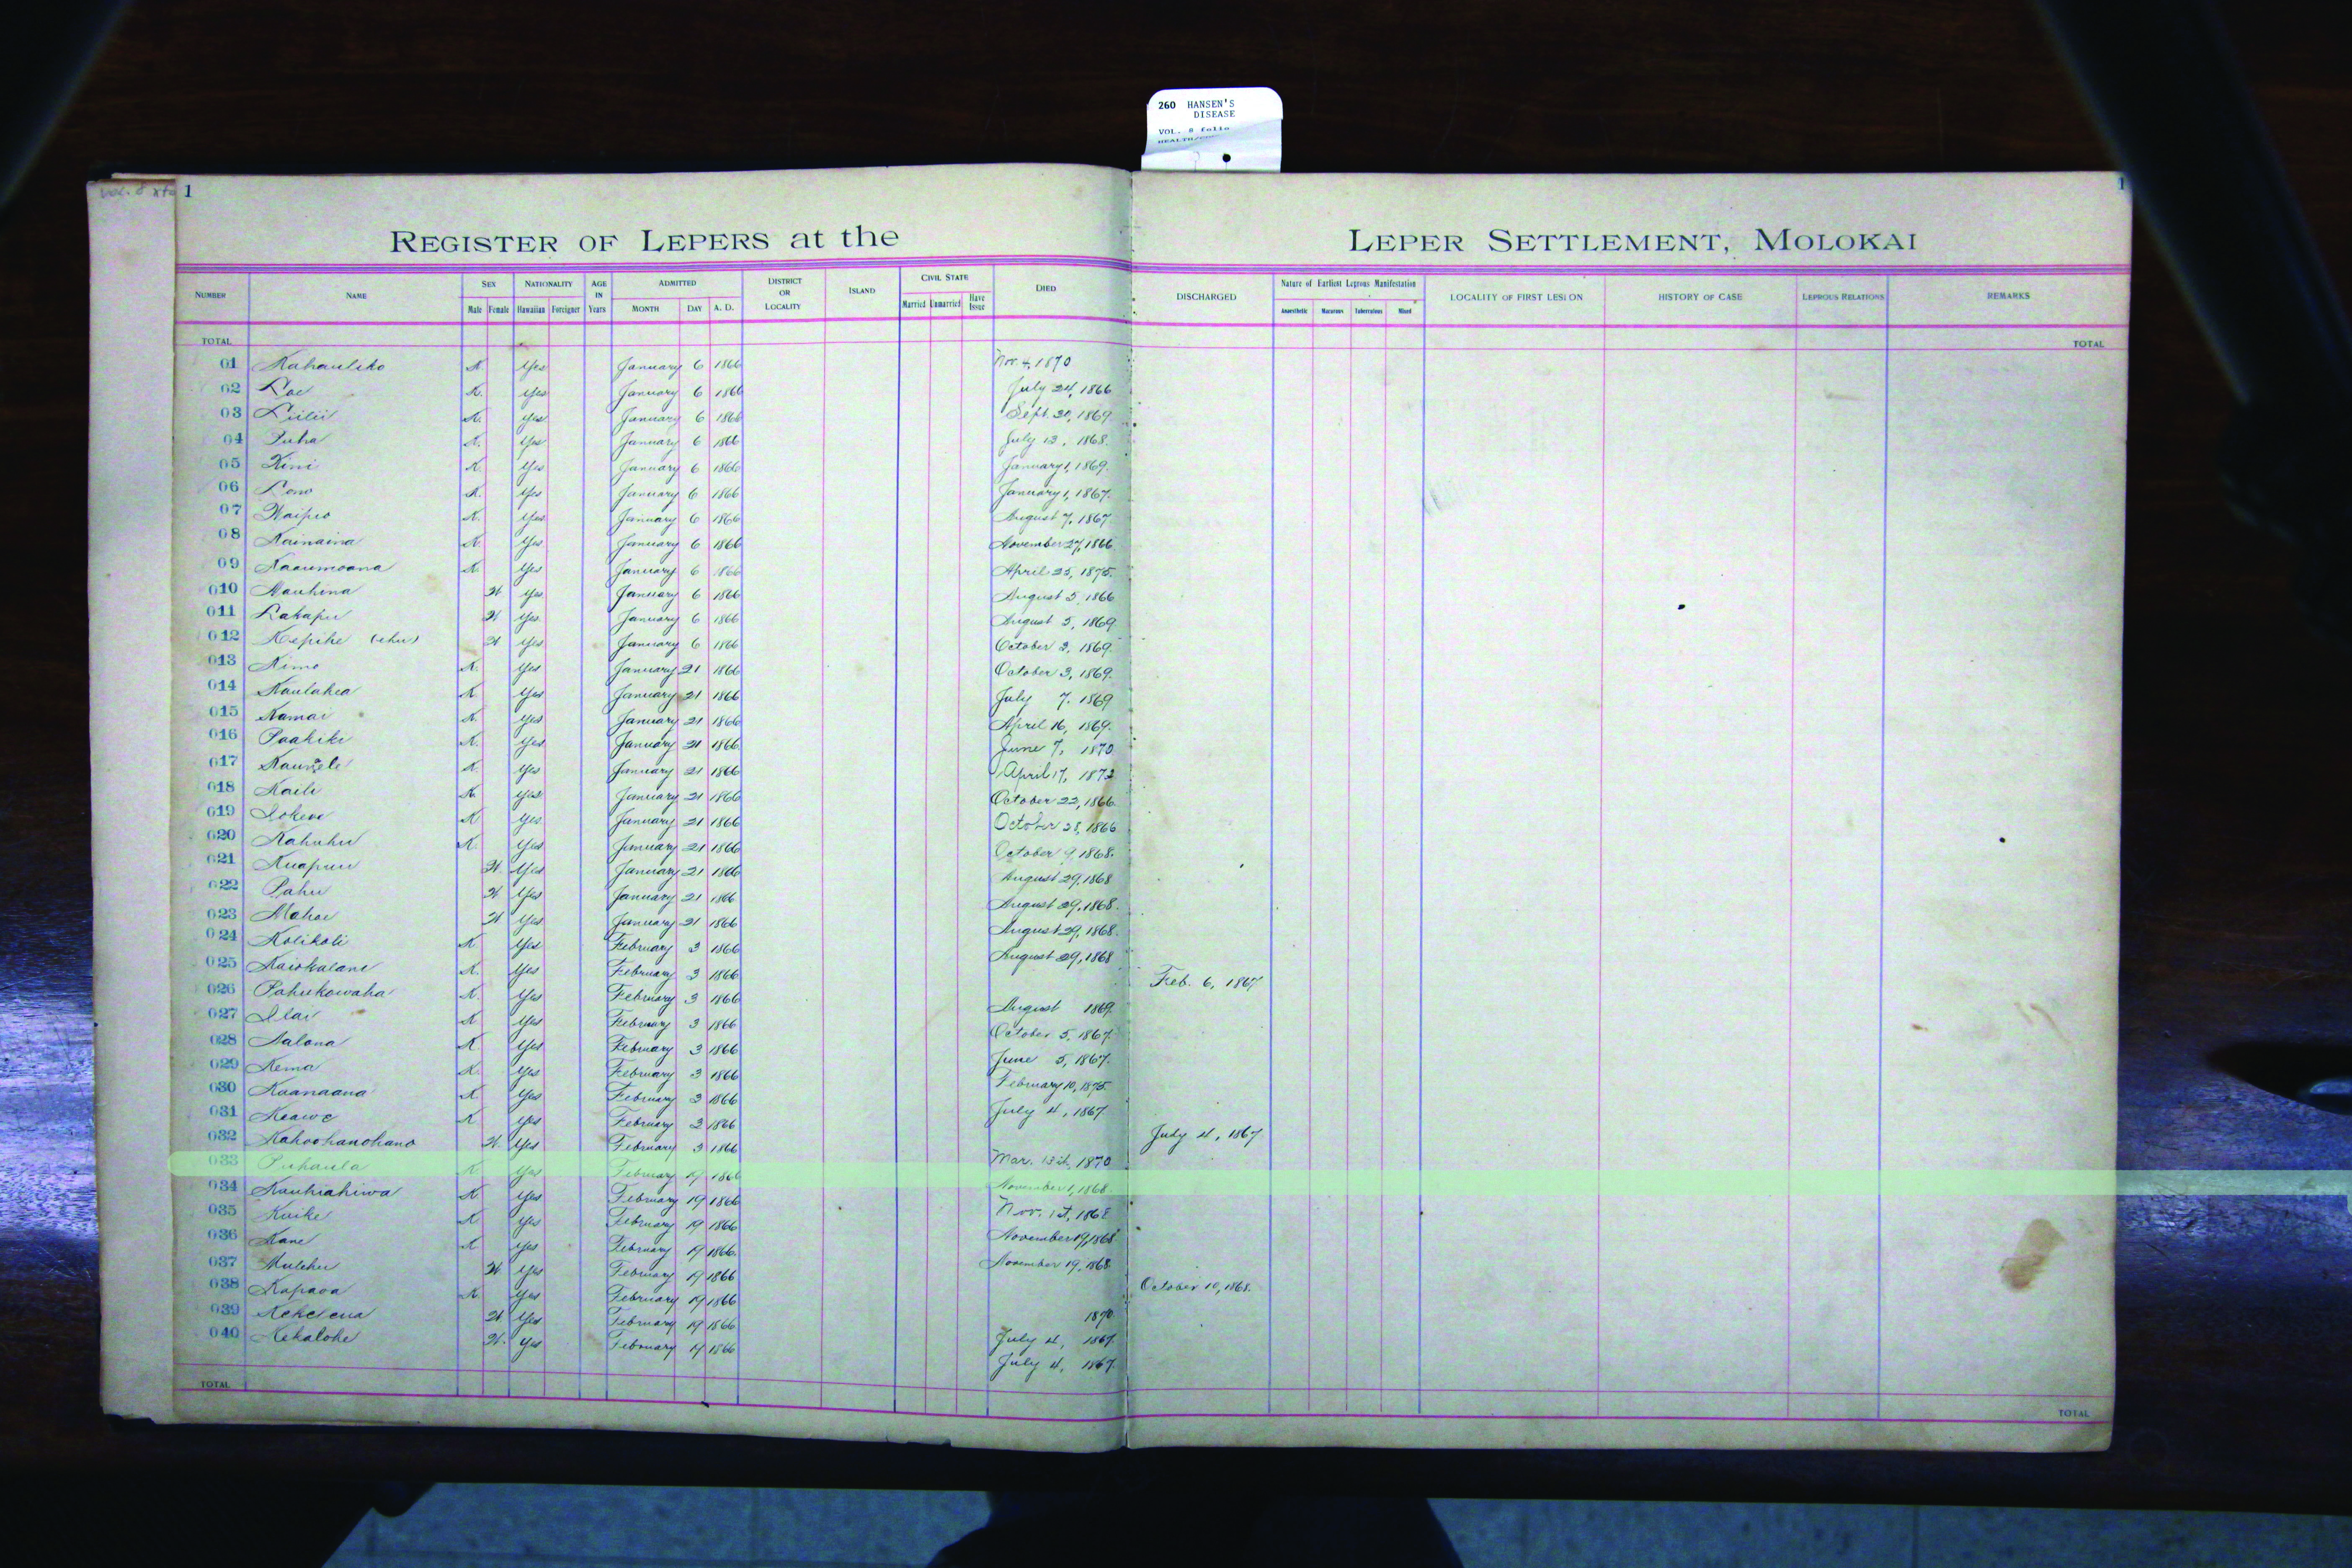 260 HANSEN'S
DISEASE
VOL. 8 folio
1
1
REGISTER OF LEPERS at the LEPER SETTLEMENT, MOLOKAI
NUMBER NAME SEX NATIONALITY AGE IN Years ADMITTED DISTRICT OR LOCALITY ISLAND CIVIL STATE DIED DISCHARGED Nature of Earliest Leprous Manifestation LOCALITY OF FIRST LESION HISTORY OF CASE LEPROUS RELATIONS REMARKS
Male Female Hawaiian Foreigner MONTH DAY A. D. Married Unmarried Have Issue Anaesthetic Macurous Tuberculous Mixed
TOTAL TOTAL
01 Kahauliko K Yes January 6 1866 Nov. 4, 1870
02 Loe K. Yes January 6 1866 July 24, 1866
03 Liilii K. Yes January 6 1866 Sept. 20, 1869.
04 Puha K. Yes January 6 1866 July 13, 1868.
05 Kini K. Yes January 6 1866 January 1, 1869.
06 Lono K. Yes January 6 1866 January 1, 1867.
07 Waipio K. Yes January 6 1866 August 7, 1867
08 Kainaina K. Yes January 6 1866 November 27, 1866
09 Kaaumoana K. Yes January 6 1866 April 25, 1875.
010 Mauhina W Yes January 6 1866 August 5, 1866
011 Lakapu W Yes January 6 1866 August 5, 1869.
012 Kepihe (ehu) W Yes January 6 1866 October 3, 1869.
013 Kimo K. Yes January 21 1866 October 3, 1869.
014 Kaulahea K Yes January 21 1866 July 7, 1869
015 Kamai K. Yes January 21 1866 April 16, 1869.
016 Paakiki K. Yes January 21 1866 June 7, 1870
017 K. Yes January 21 1866 April 17, 1872
018 Kaili K. Yes January 21 1866 October 22, 1866.
019 Iokewe K Yes January 21 1866 October 28, 1866
020 Kahuhu K. Yes January 21 1866 October 9, 1868.
021 Kuapuu W. Yes January 21 1866 August 29, 1868
022 Pahu W Yes January 21 1866 August 29, 1868.
023 Mahoe W Yes January 21 1866 August 29, 1868.
024 Kolikoli K Yes February 3 1866 August 29, 1868
025 Kaiokalani K. Yes February 3 1866 Feb. 6, 1867
026 Pahukowaha K. Yes February 3 1866 August 1869.
027 Ilai K Yes February 3 1866 October 5, 1867.
028 Aalona K Yes February 3 1866 June 5, 1867.
029 Kema K. Yes February 3 1866 February 10, 1875.
030 Kaanaana K Yes February 3 1866 July 4, 1867.
031 Keawe K Yes February 3 1866 July 4, 1867
032 Kahoohanohano W. Yes February 3 1866 Mar. 13th, 1870
033 Puhaula K Yes February 19 1866 November 1, 1868.
034 Kauhiahiwa K Yes February 19 1866 Nov. 1st, 1868
035 Kuike K Yes February 19 1866 November 19, 1868
036 Kane K Yes February 19 1866. November 19, 1868
037 Mulehu W Yes February 19 1866 October 10, 1868.
038 Kapaoa K. Yes February 19 1866 1870
039 Kekelena W Yes February 19 1866 July 4, 1867.
040 Kekalohe W. Yes February 19 1866 July 4, 1867.
TOTAL TOTAL